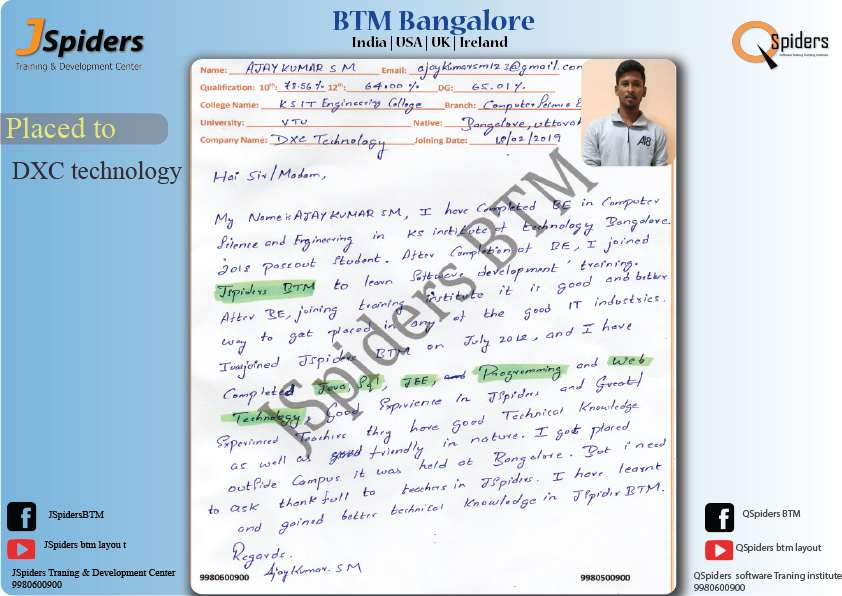 BTM Bangalore
India | USA | UK | Ireland
JSpiders
Training & Development Center
QSpiders
Software Testing Training Institute
Placed to
DXC technology
Name: AJAY KUMAR S M Email: ajaykumarsm123@gmail.com
Qualification: 10th: 78.56 % 12th: 64.00 % DG: 65.01 %
College Name: KSIT Engineering College Branch: Computer Science E
University: VTU Native: Bangalore, uttarah
Company Name: DXC Technology Joining Date: 18/02/2019
Hai Sir/Madam,
My Name is AJAY KUMAR SM, I have Completed BE in Computer
Science and Engineering in KS institute of technology Bangalore.
2018 passout student. After Completion of BE, I joined
Jspiders BTM to learn Software development training.
After BE, joining training institute it is good and better
way to get placed in any of the good IT industries.
I joined JSpiders BTM on July 2018, and I have
Completed Java, Sql, JEE, and Programming and Web
Technology, Good Experience in JSpiders and Great
Experienced Teachers they have good Technical Knowledge
as well as good friendly in nature. I got placed
outside Campus it was held at Bangalore. But i need
to ask thankfull to teachers in JSpiders. I have learnt
and gained better technical knowledge in JSpider BTM.
Regards.
Ajay Kumar. S M
9980600900 9980500900
JSpiders BTM
JSpidersBTM
JSpiders btm layou t
JSpiders Traning & Development Center
9980600900
QSpiders BTM
QSpiders btm layout
QSpiders software Traning institute
9980600900